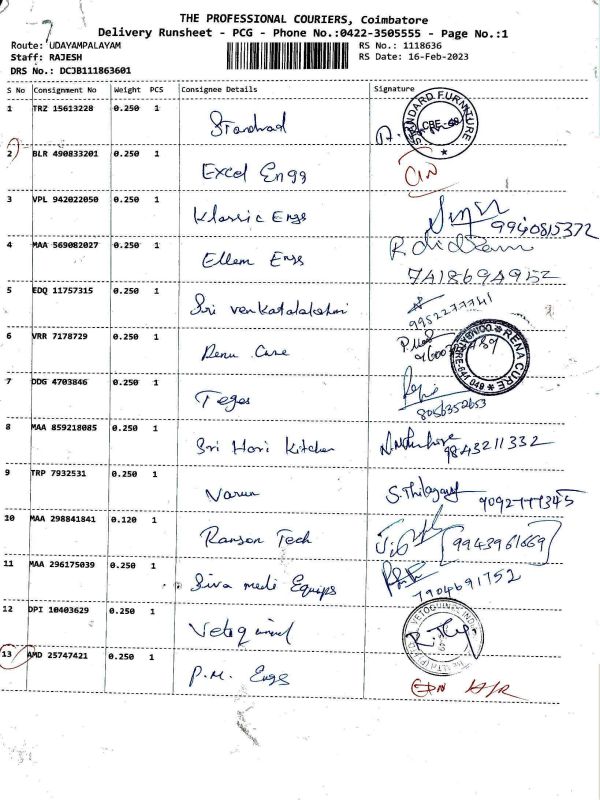 7
THE PROFESSIONAL COURIERS, Coimbatore
Delivery Runsheet - PCG - Phone No.:0422-3505555 - Page No.:1
Route: UDAYAMPALAYAM RS No.: 1118636
Staff: RAJESH RS Date: 16-Feb-2023
DRS No.: DCJB111863601
S No Consignment No Weight PCS Consignee Details Signature
1 TRZ 15613228 0.250 1 Standrad
STANDARD FURNITURE CBE
2 BLR 490833201 0.250 1 Excel Engg
3 VPL 942022050 0.250 1 Klassic Engs 9940815372
4 MAA 569082027 0.250 1 Ellem Engs
7418694952
5 EDQ 11757315 0.250 1 Sri venkatalakshmi
9952277741
6 VRR 7178729 0.250 1 Renu Care
RENA CURE
7 DDG 4703846 0.250 1 Teges
8056352653
8 MAA 859218085 0.250 1 Sri Hari Kitchen
9843211332
9 TRP 7932531 0.250 1 Varun S.Thilagavy 9092777345
10 MAA 298841841 0.120 1 Ranson Tech 9943961669
11 MAA 296175039 0.250 1 Siva medi Equips
7904691752
12 DPI 10403629 0.250 1
13 AMD 25747421 0.250 1 P.M. Engs